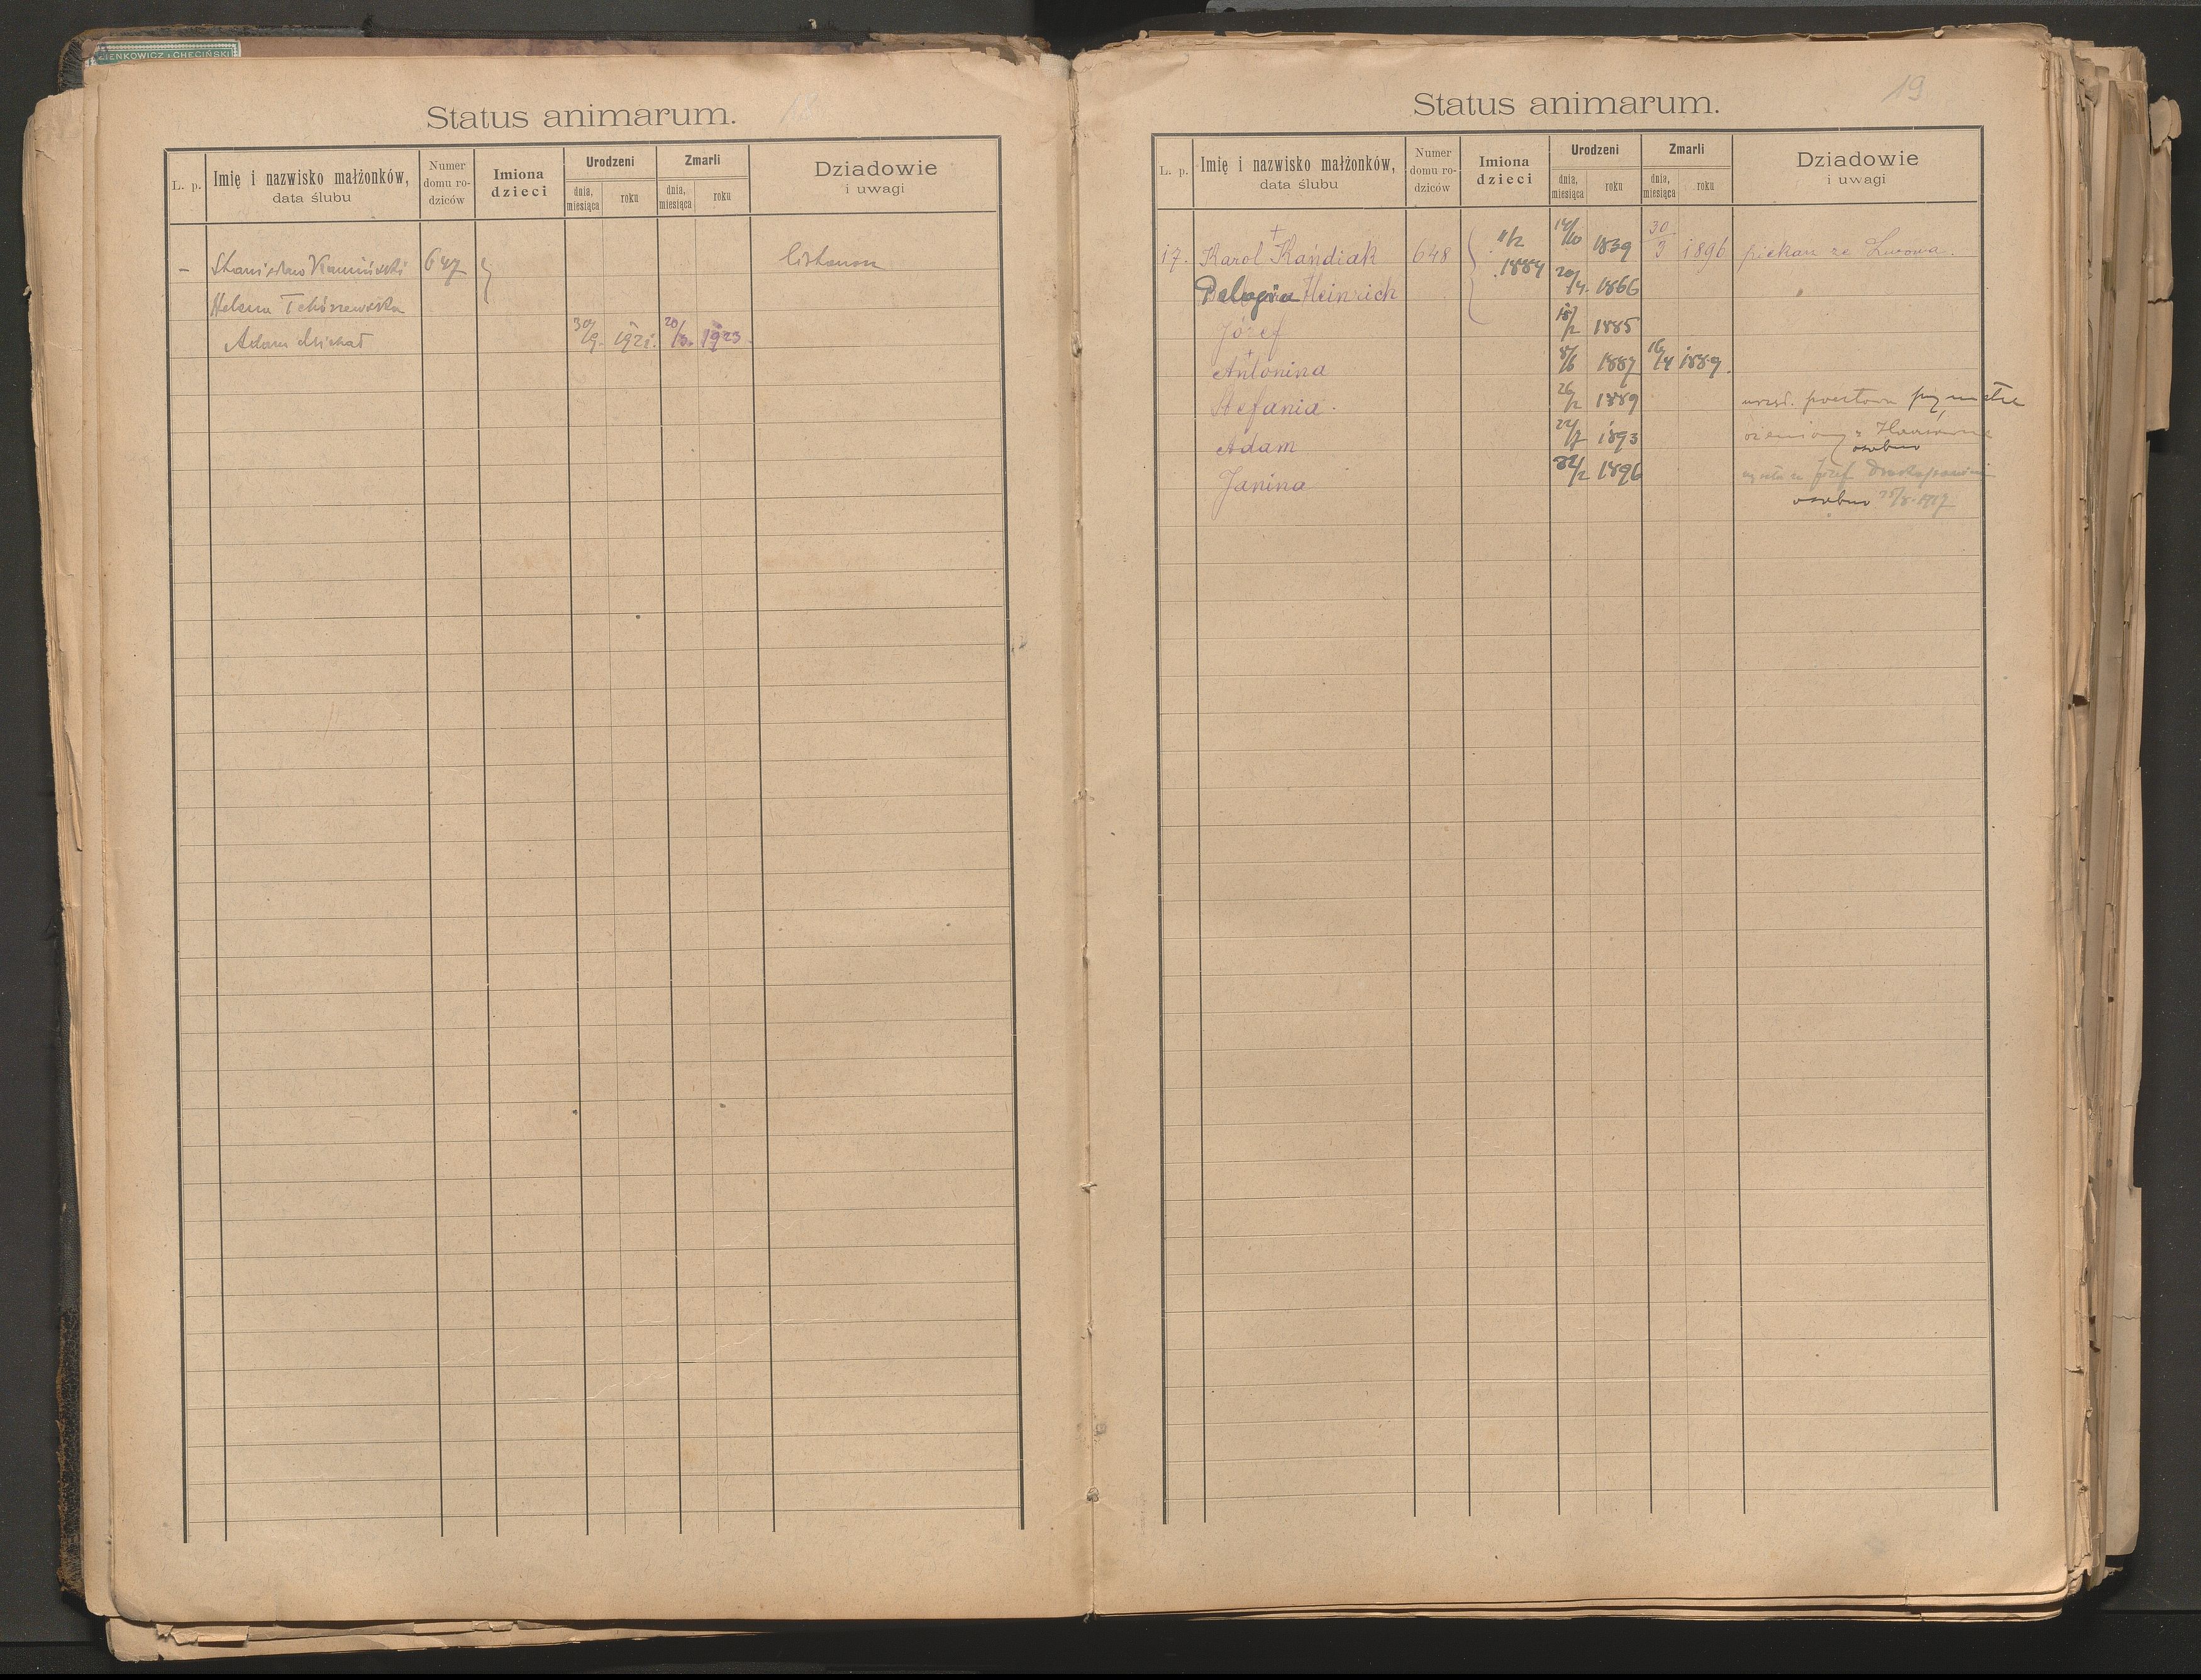 ZIENKOWICZ i CHĘCIŃSKI
Status animarum.
L. p.
Imię i nazwisko małżonków,
data ślubu
Numer
domu ro-
dziców
Imiona
dzieci
Urodzeni
dnia,
miesiąca
roku
Zmarli
dnia,
miesiąca
roku
Dziadowie
i uwagi
– Stanisław Kamiński 647 listonosz
Helena Tchórzewska
Adam Michał 30/9. 1921. 20/3. 1923.
19
Status animarum.
L. p.
Imię i nazwisko małżonków,
data ślubu
Numer
domu ro-
dziców
Imiona
dzieci
Urodzeni
dnia,
miesiąca
roku
Zmarli
dnia,
miesiąca
roku
Dziadowie
i uwagi
17. Karol + Kandiak 648 11/2 14/10 1839 30/3 1896 piekarz ze Lwowa.
Pelagia Heinrich 1884 20/4. 1866
Józef 18/2 1885
+ Antonina 8/6 1887 16/4 1889.
Stefania. 26/2 1889 urzęd. pocztowa przy matce
Adam 24/7 1893 ożeniony z
osobno
Janina 22/2 1896 Józef
osobno 25/8. 1917